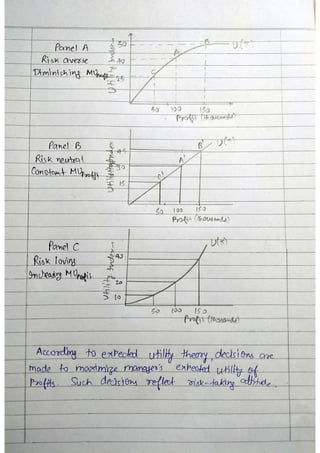 Panel A
Risk averse
Diminishing MUprofit
Utility Index
50
40
25
C
B
A
U(π)
50 100 150
Profit (thousands)
Panel B
Risk neutral
Constant MUprofit
Utility Index
45
30
15
C'
A'
B'
U(π)
50 100 150
Profit (thousands)
Panel C
Risk loving
Increasing MUprofit
Utility Index
20
10
U(π)
50 100 150
Profit (thousands)
According to expected utility theory, decisions are
made to maximize manager's expected utility of
Profits. Such decisions reflect risk-taking attitude.